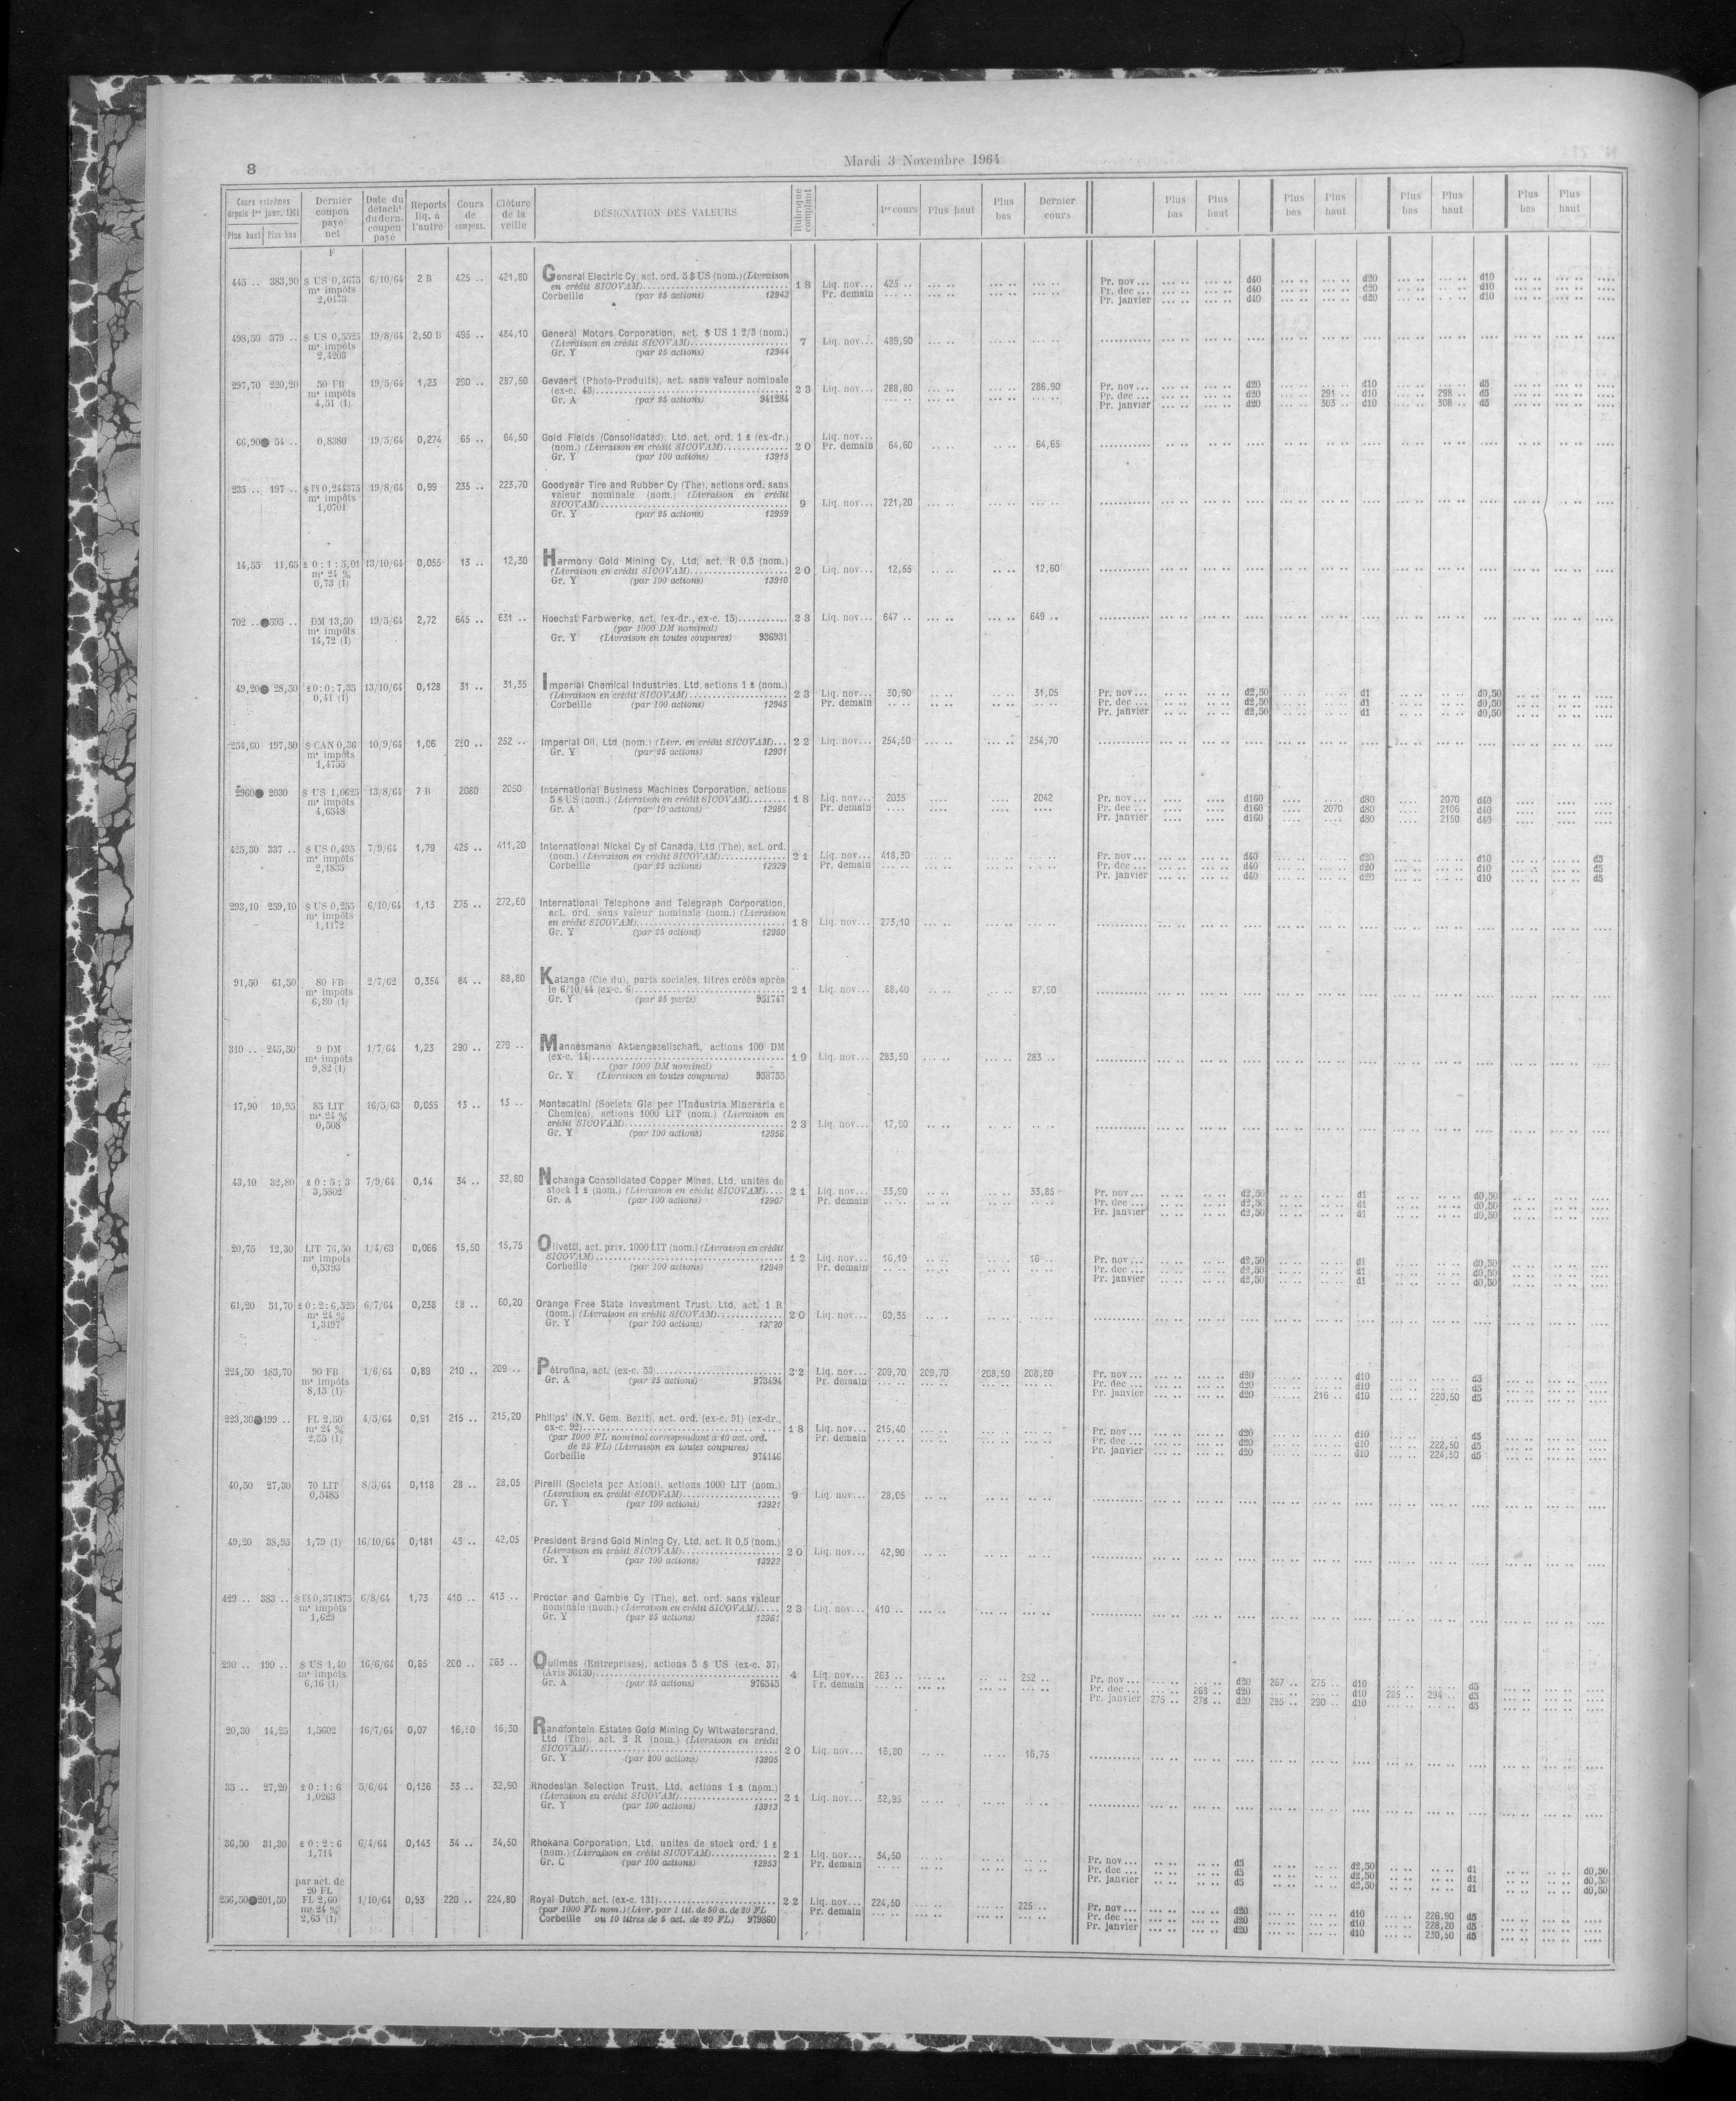 8
Mardi 3 Novembre 1964
Cours extrêmes depuis 1er janv. 1964 Plus haut Plus bas | Dernier coupon payé net | Date du détacht du dern. coupon payé | Reports liq. à l'autre | Cours de compens. | Clôture de la veille | DÉSIGNATION DES VALEURS | Rubrique comptant | 1er cours | Plus haut | Plus bas | Dernier cours | Plus bas | Plus haut | Plus bas | Plus haut | Plus bas | Plus haut | Plus bas | Plus haut
F
445 .. 383,90 $ US 0,4675 6/10/64 2 B 425 .. 421,80 General Electric Cy, act. ord. 5 $ US (nom.) (Livraison
m* impôts en crédit SICOVAM) 18 Liq. nov... 425 .. Pr. nov... d40 d20 d10
2,0473 Corbeille (par 25 actions) 12943 Pr. demain Pr. dec ... d40 d20 d10
Pr. janvier d40 d20 d10
498,50 379 .. $ US 0,5525 19/8/64 2,50 B 495 .. 484,10 General Motors Corporation, act. $ US 1 2/3 (nom.)
m* impôts (Livraison en crédit SICOVAM) 7 Liq. nov... 489,90
2,4203 Gr. Y (par 25 actions) 12944
297,70 220,20 50 FB 19/5/64 1,23 290 .. 287,50 Gevaert (Photo-Produits), act. sans valeur nominale
m* impôts (ex-c. 43) 23 Liq. nov... 288,80 286,90 Pr. nov... d20 d10 d5
4,51 (1) Gr. A (par 25 actions) 941284 Pr. dec ... d20 291 .. d10 298 .. d5
Pr. janvier d20 303 .. d10 308 .. d5
66,90 54 .. 0,8380 19/5/64 0,274 65 .. 64,50 Gold Fields (Consolidated), Ltd, act. ord. 1 £ (ex-dr.) Liq. nov...
(nom.) (Livraison en crédit SICOVAM) 20 Pr. demain 64,60 64,65
Gr. Y (par 100 actions) 13915
235 .. 197 .. $ US 0,244375 19/8/64 0,99 235 .. 223,70 Goodyear Tire and Rubber Cy (The), actions ord. sans
m* impôts valeur nominale (nom.) (Livraison en crédit
1,0701 SICOVAM) 9 Liq. nov... 221,20
Gr. Y (par 25 actions) 12959
14,55 11,65 £ 0 : 1 : 5,01 13/10/64 0,055 13 .. 12,30 Harmony Gold Mining Cy, Ltd, act. R 0,5 (nom.)
m* 24 % (Livraison en crédit SICOVAM) 20 Liq. nov... 12,55 12,60
0,73 (1) Gr. Y (par 100 actions) 13910
702 .. 595 .. DM 13,50 19/5/64 2,72 645 .. 631 .. Hoechst Farbwerke, act. (ex-dr., ex-c. 15) 23 Liq. nov... 647 .. 649 ..
m* impôts (par 1000 DM nominal)
14,72 (1) Gr. Y (Livraison en toutes coupures) 936931
49,20 28,50 £ 0 : 0 : 7,35 13/10/64 0,128 31 .. 31,35 Imperial Chemical Industries, Ltd, actions 1 £ (nom.)
0,41 (1) (Livraison en crédit SICOVAM) 23 Liq. nov... 30,90 31,05 Pr. nov... d2,50 d1 d0,50
Corbeille (par 100 actions) 12945 Pr. demain Pr. dec ... d2,50 d1 d0,50
Pr. janvier d2,50 d1 d0,50
254,60 197,50 $ CAN 0,36 10/9/64 1,06 250 .. 252 .. Imperial Oil, Ltd (nom.) (Livr. en crédit SICOVAM) 22 Liq. nov... 254,50 254,70
m* impôts Gr. Y (par 25 actions) 12901
1,4755
2960 2030 $ US 1,0625 13/8/64 7 B 2080 2050 International Business Machines Corporation, actions
m* impôts 5 $ US (nom.) (Livraison en crédit SICOVAM) 18 Liq. nov... 2035 2042 Pr. nov... d160 d80 2070 d40
4,6548 Gr. A (par 10 actions) 12984 Pr. demain Pr. dec ... d160 2070 d80 2106 d40
Pr. janvier d160 d80 2150 d40
425,30 337 .. $ US 0,495 7/9/64 1,79 425 .. 411,20 International Nickel Cy of Canada, Ltd (The), act. ord.
m* impôts (nom.) (Livraison en crédit SICOVAM) 21 Liq. nov... 418,30 Pr. nov... d40 d20 d10 d5
2,1835 Corbeille (par 25 actions) 12929 Pr. demain Pr. dec ... d40 d20 d10 d5
Pr. janvier d40 d20 d10 d5
293,10 259,10 $ US 0,255 6/10/64 1,13 275 .. 272,60 International Telephone and Telegraph Corporation,
m* impôts act. ord. sans valeur nominale (nom.) (Livraison
1,1172 en crédit SICOVAM) 18 Liq. nov... 273,10
Gr. Y (par 25 actions) 12960
91,50 61,50 80 FB 2/7/62 0,354 84 .. 88,80 Katanga (Cie du), parts sociales, titres créés après
m* impôts le 6/10/44 (ex-c. 6) 21 Liq. nov... 88,40 87,90
6,80 (1) Gr. Y (par 25 parts) 951747
310 .. 245,50 9 DM 1/7/64 1,23 290 .. 279 .. Mannesmann Aktiengesellschaft, actions 100 DM
m* impôts (ex-c. 14) 19 Liq. nov... 283,50 283 ..
9,82 (1) (par 1000 DM nominal)
Gr. Y (Livraison en toutes coupures) 958755
17,90 10,95 85 LIT 16/5/63 0,055 13 .. 13 .. Montecatini (Societa Gle per l'Industria Mineraria e
m* 24 % Chemica), actions 1000 LIT (nom.) (Livraison en
0,508 crédit SICOVAM) 23 Liq. nov... 12,90
Gr. Y (par 100 actions) 12956
43,10 32,80 £ 0 : 5 : 3 7/9/64 0,14 34 .. 32,80 Nchanga Consolidated Copper Mines, Ltd, unités de
3,5802 stock 1 £ (nom.) (Livraison en crédit SICOVAM) 21 Liq. nov... 33,90 33,85 Pr. nov... d2,50 d1 d0,50
Gr. A (par 100 actions) 12907 Pr. demain Pr. dec ... d2,50 d1 d0,50
Pr. janvier d2,50 d1 d0,50
20,75 12,30 LIT 76,50 1/4/63 0,066 15,50 15,75 Olivetti, act. priv. 1000 LIT (nom.) (Livraison en crédit
m* impôts SICOVAM) 12 Liq. nov... 16,10 16 .. Pr. nov... d2,50 d1 d0,50
0,5393 Corbeille (par 100 actions) 12949 Pr. demain Pr. dec ... d2,50 d1 d0,50
Pr. janvier d2,50 d1 d0,50
61,20 51,70 £ 0 : 2 : 6,525 6/7/64 0,238 58 .. 60,20 Orange Free State Investment Trust, Ltd, act. 1 R
m* 24 % (nom.) (Livraison en crédit SICOVAM) 20 Liq. nov... 60,35
1,3197 Gr. Y (par 100 actions) 13920
224,50 183,70 90 FB 1/6/64 0,89 210 .. 209 .. Pétrofina, act. (ex-c. 53) 22 Liq. nov... 209,70 209,70 208,50 208,80 Pr. nov... d20 d10 d5
m* impôts Gr. A (par 25 actions) 973494 Pr. demain Pr. dec ... d20 d10 d5
8,13 (1) Pr. janvier d20 216 .. d10 220,50 d5
223,30 199 .. FL 2,50 4/5/64 0,91 215 .. 215,20 Philips' (N.V. Gem. Bezit), act. ord. (ex-c. 91) (ex-dr.,
m* 24 % ex-c. 92) 18 Liq. nov... 215,40 Pr. nov... d20 d10 d5
2,55 (1) (par 1000 FL nominal correspondant à 40 act. ord. Pr. demain Pr. dec ... d20 d10 222,50 d5
de 25 FL) (Livraison en toutes coupures) Pr. janvier d20 d10 224,50 d5
Corbeille 974146
40,50 27,30 70 LIT 8/5/64 0,118 28 .. 28,05 Pirelli (Societa per Azioni), actions 1000 LIT (nom.)
0,5485 (Livraison en crédit SICOVAM) 9 Liq. nov... 28,05
Gr. Y (par 100 actions) 13921
49,20 38,95 1,79 (1) 16/10/64 0,181 43 .. 42,05 President Brand Gold Mining Cy, Ltd, act. R 0,5 (nom.)
(Livraison en crédit SICOVAM) 20 Liq. nov... 42,90
Gr. Y (par 100 actions) 13922
429 .. 383 .. $ US 0,371875 6/8/64 1,73 410 .. 413 .. Procter and Gamble Cy (The), act. ord. sans valeur
m* impôts nominale (nom.) (Livraison en crédit SICOVAM) 23 Liq. nov... 410 ..
1,629 Gr. Y (par 25 actions) 12961
290 .. 190 .. $ US 1,40 16/6/64 0,85 200 .. 263 .. Quilmès (Entreprises), actions 5 $ US (ex-c. 37)
m* impôts (Avis 36130) 4 Liq. nov... 263 .. 252 .. Pr. nov... d20 267 .. 275 .. d10 d5
6,16 (1) Gr. A (par 25 actions) 976545 Pr. demain Pr. dec ... 263 .. d20 d10 285 .. 294 .. d5
Pr. janvier 275 .. 278 .. d20 285 .. 290 .. d10 d5
20,30 14,25 1,5602 16/7/64 0,07 16,50 16,30 Randfontein Estates Gold Mining Cy Witwatersrand,
Ltd (The), act. 2 R (nom.) (Livraison en crédit
SICOVAM) 20 Liq. nov... 16,80 16,75
Gr. Y (par 200 actions) 13905
35 .. 27,20 £ 0 : 1 : 6 5/6/64 0,136 33 .. 32,90 Rhodesian Selection Trust, Ltd, actions 1 £ (nom.)
1,0263 (Livraison en crédit SICOVAM) 21 Liq. nov... 32,95
Gr. Y (par 100 actions) 13913
36,50 31,30 £ 0 : 2 : 6 6/4/64 0,143 34 .. 34,50 Rhokana Corporation, Ltd, unités de stock ord. 1 £
1,714 (nom.) (Livraison en crédit SICOVAM) 21 Liq. nov... 34,50 Pr. nov... d5 d2,50 d1 d0,50
Gr. C (par 100 actions) 12953 Pr. demain Pr. dec ... d5 d2,50 d1 d0,50
Pr. janvier d5 d2,50 d1 d0,50
par act. de
20 FL
256,50 201,50 FL 2,60 1/10/64 0,93 220 .. 224,80 Royal Dutch, act. (ex-c. 131) 22 Liq. nov... 224,50 225 .. Pr. nov... d20 d10 226,90 d5
m* 24 % (par 1000 FL nom.) (Livr. par 1 tit. de 50 a. de 20 FL Pr. demain Pr. dec ... d20 d10 228,20 d5
2,65 (1) Corbeille ou 10 titres de 5 act. de 20 FL) 979860 Pr. janvier d20 d10 230,50 d5